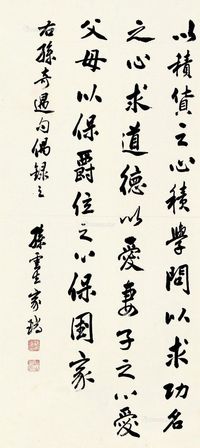 以積貨之心積學問以求功名
之心求道德以愛妻子之心愛
父母以保爵位之心保國家
右孫奇遇句偶録之
孫雲生家瑞